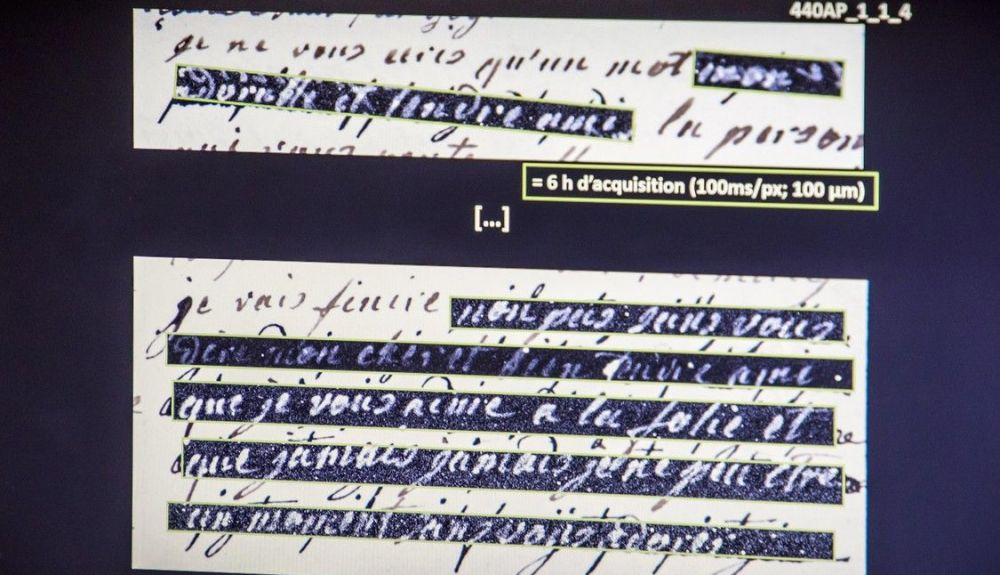 440AP_1_1_4
je ne vous dis qu'un mot mon
et tendre ami la person
= 6 h d'acquisition (100ms/px; 100 µm)
[...]
je vais finire non pas sans vous
dire mon cher et bien tendre ami
que je vous aime a la folie et
que jamais jamais je ne peu être
un moment sans vous adorer